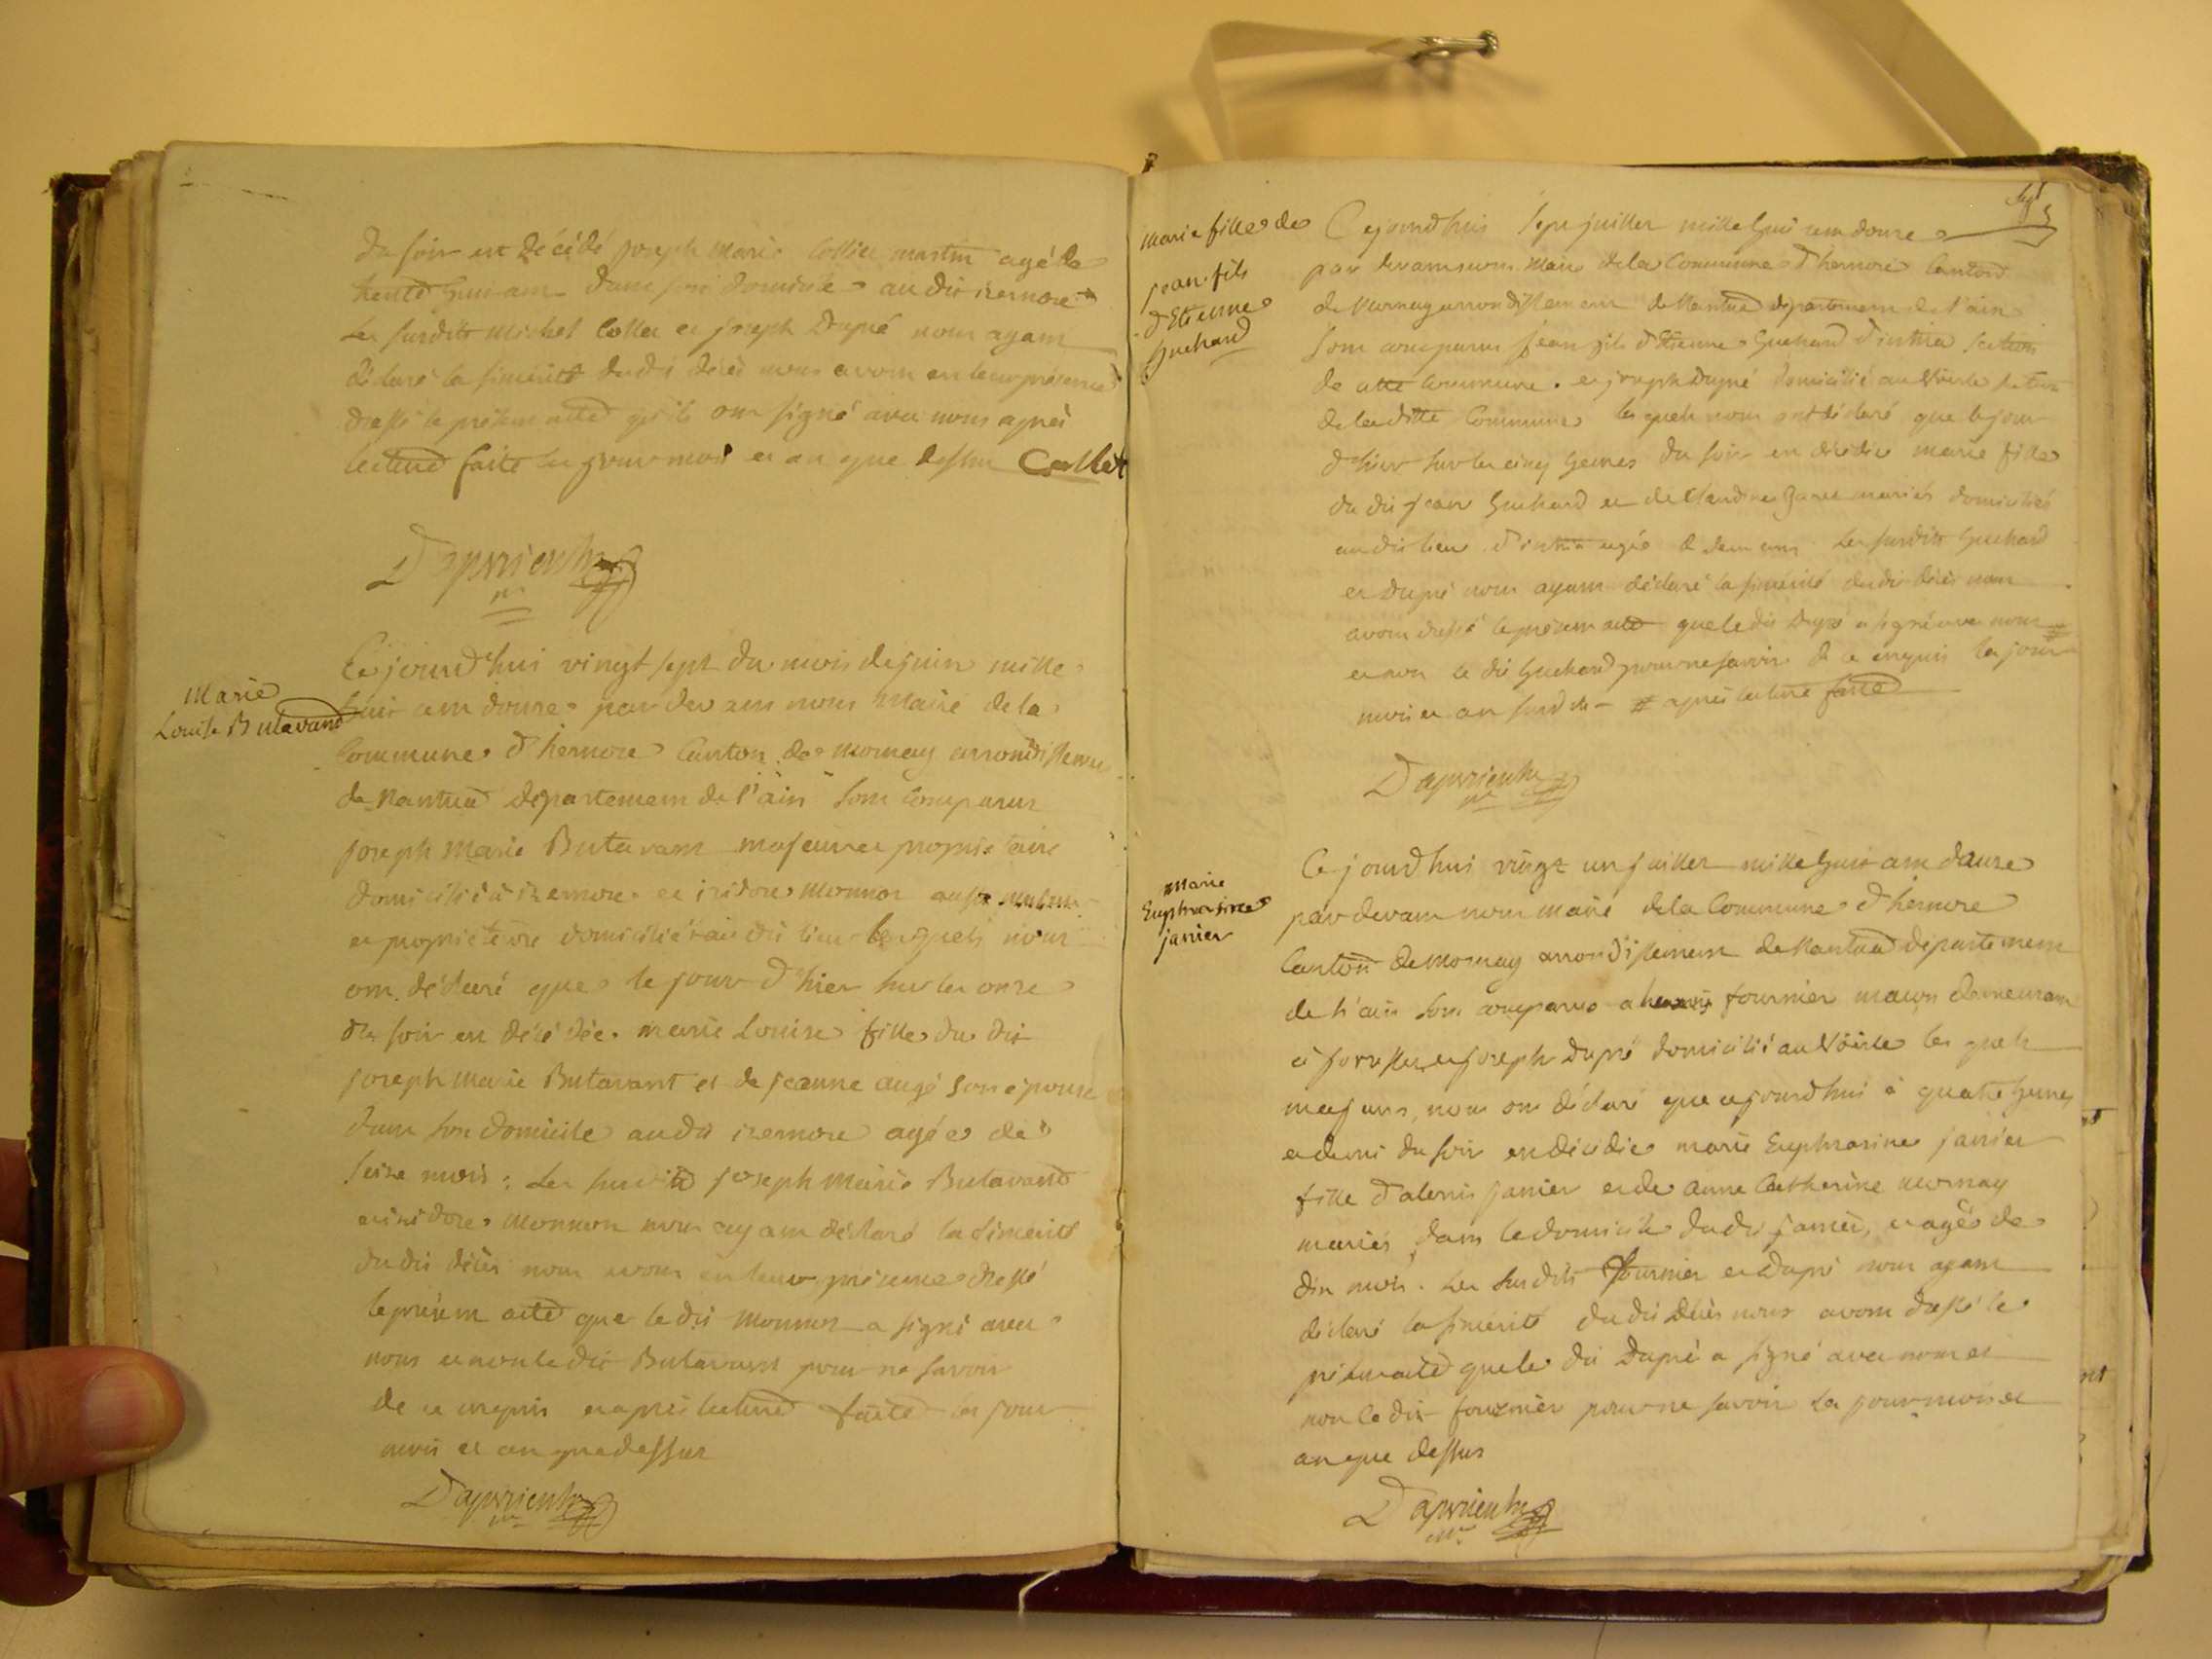 du soir est décédé joseph marie Collet martin agé de
trente huit ans dans son domicile audit izernore
Les susdits michel Collet et joseph Dupré nous ayant
déclaré la sincérité dudit décès nous avons en leur présence
dressé le présent acte qu'ils ont signé avec nous après
lecture faite les jour mois et an que dessus Collet
Marie
Louise Butavand
Cejourd'hui vingt sept du mois de juin mille
huit cent douze par devant nous Maire de la
Commune d'hernore Canton de Mornay arrondissement
de Nantua département de l'ain sont comparus
joseph Marie Butavant majeur et propriétaire
domicilié à izernore et isidore Monnor aussi majeur
et propriétaire domicilié audit lieu lesquels nous
ont déclaré que le jour d'hier sur les onze
du soir est décédée marie Louise fille du dit
joseph Marie Butavant et de jeanne augé son épouse
dans son domicile audit izernore agée de
seize mois : Les susdits joseph Marie Butavand
et isidore Monnor nous ayant déclaré la sincérité
dudit décès nous avons en leur présence dressé
le présent acte que le dit Monnor a signé avec
nous et non le dit Butavant pour ne savoir
de ce enquis et après lecture faite les jour
mois et an que dessus
Marie fille de
jean fils
d'Etienne
Guchard
Cejourd'hui sept juillet mille huit cent douze
par devant nous Maire de la Commune d'hernore Canton
de Mornay arrondissement de Nantua département de l'ain
sont comparus jean fils d'Etienne Guchard d'intria section
de cette commune. et joseph dupré domicilié au Voerle section
de laditte Commune lesquels nous ont déclaré que le jour
d'hier sur les cinq heures du soir est décédée marie fille
du dit jean Guchard et de Claudine mariés domiciliés
audit lieu d'intria agée de deux ans Les susdits Guchard
et Dupré nous ayant déclaré la sincérité dudit décès nous
avons dressé le présent acte que le dit Dupré a signé avec nous #
et non le dit Guchard pour ne savoir de ce enquis les jour
mois et an susdits - # après lecture faite
marie
Euphrosine
janier
Cejourd'hui vingt un juillet mille huit cent douze
par devant nous maire de la Commune d'hernore
Canton de Mornay arrondissement de Nantua département
de l'ain sont comparus fournier maçon demeurant
à et joseph dupré domicilié au Voerle les quels
majeurs, nous ont déclaré que cejourd'hui à quatre heures
et demi du soir est décédée marie Euphrosine janier
fille d'alexis janier et de anne Catherine mornay
mariés, dans le domicile dudit janier, et agée de
dix mois. Les susdits fournier et Dupré nous ayant
déclaré la sincérité dudit décès nous avons dressé le
présent acte que le dit Dupré a signé avec nous et
non le dit fournier pour ne savoir Les jour mois et
an que dessus